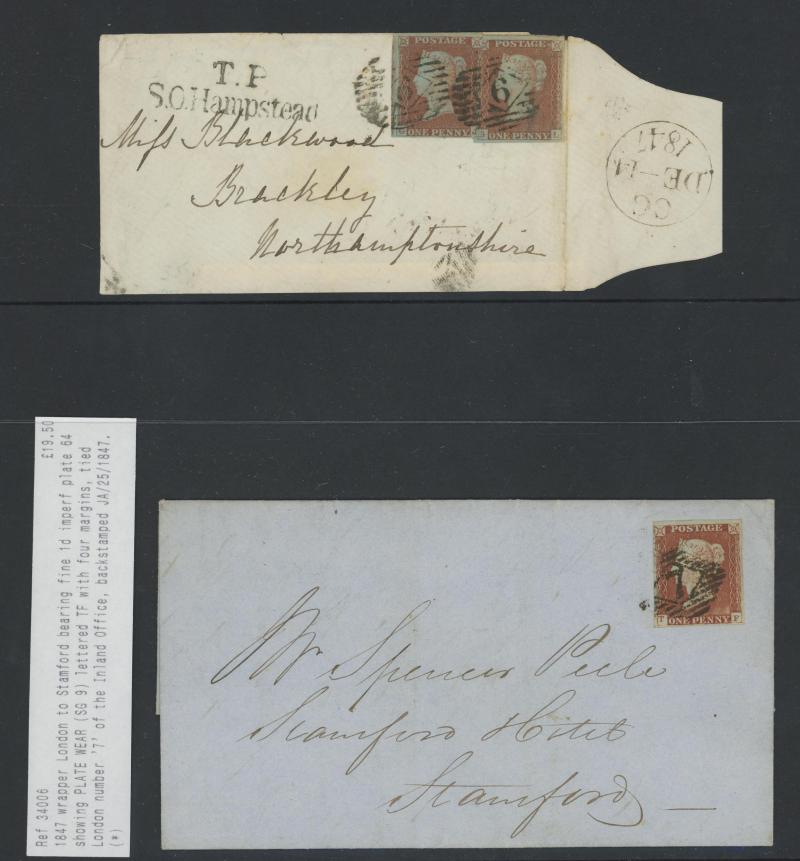 T.P
S.O.Hampstead
POSTAGE
POSTAGE
ONE PENNY
ONE PENNY
Miss Blackwood
Brackley
Northamptonshire
CC
DE-14
1847
Ref 34006 £19.50
1847 wrapper London to Stamford bearing fine 1d imperf plate 64
showing PLATE WEAR (SG 9) lettered TF with four margins, tied
London number '7' of the Inland Office, backstamped JA/25/1847.
(*)
POSTAGE
7
T ONE PENNY F
Mr Spencer Peele
Stamford Hotel
Stamford